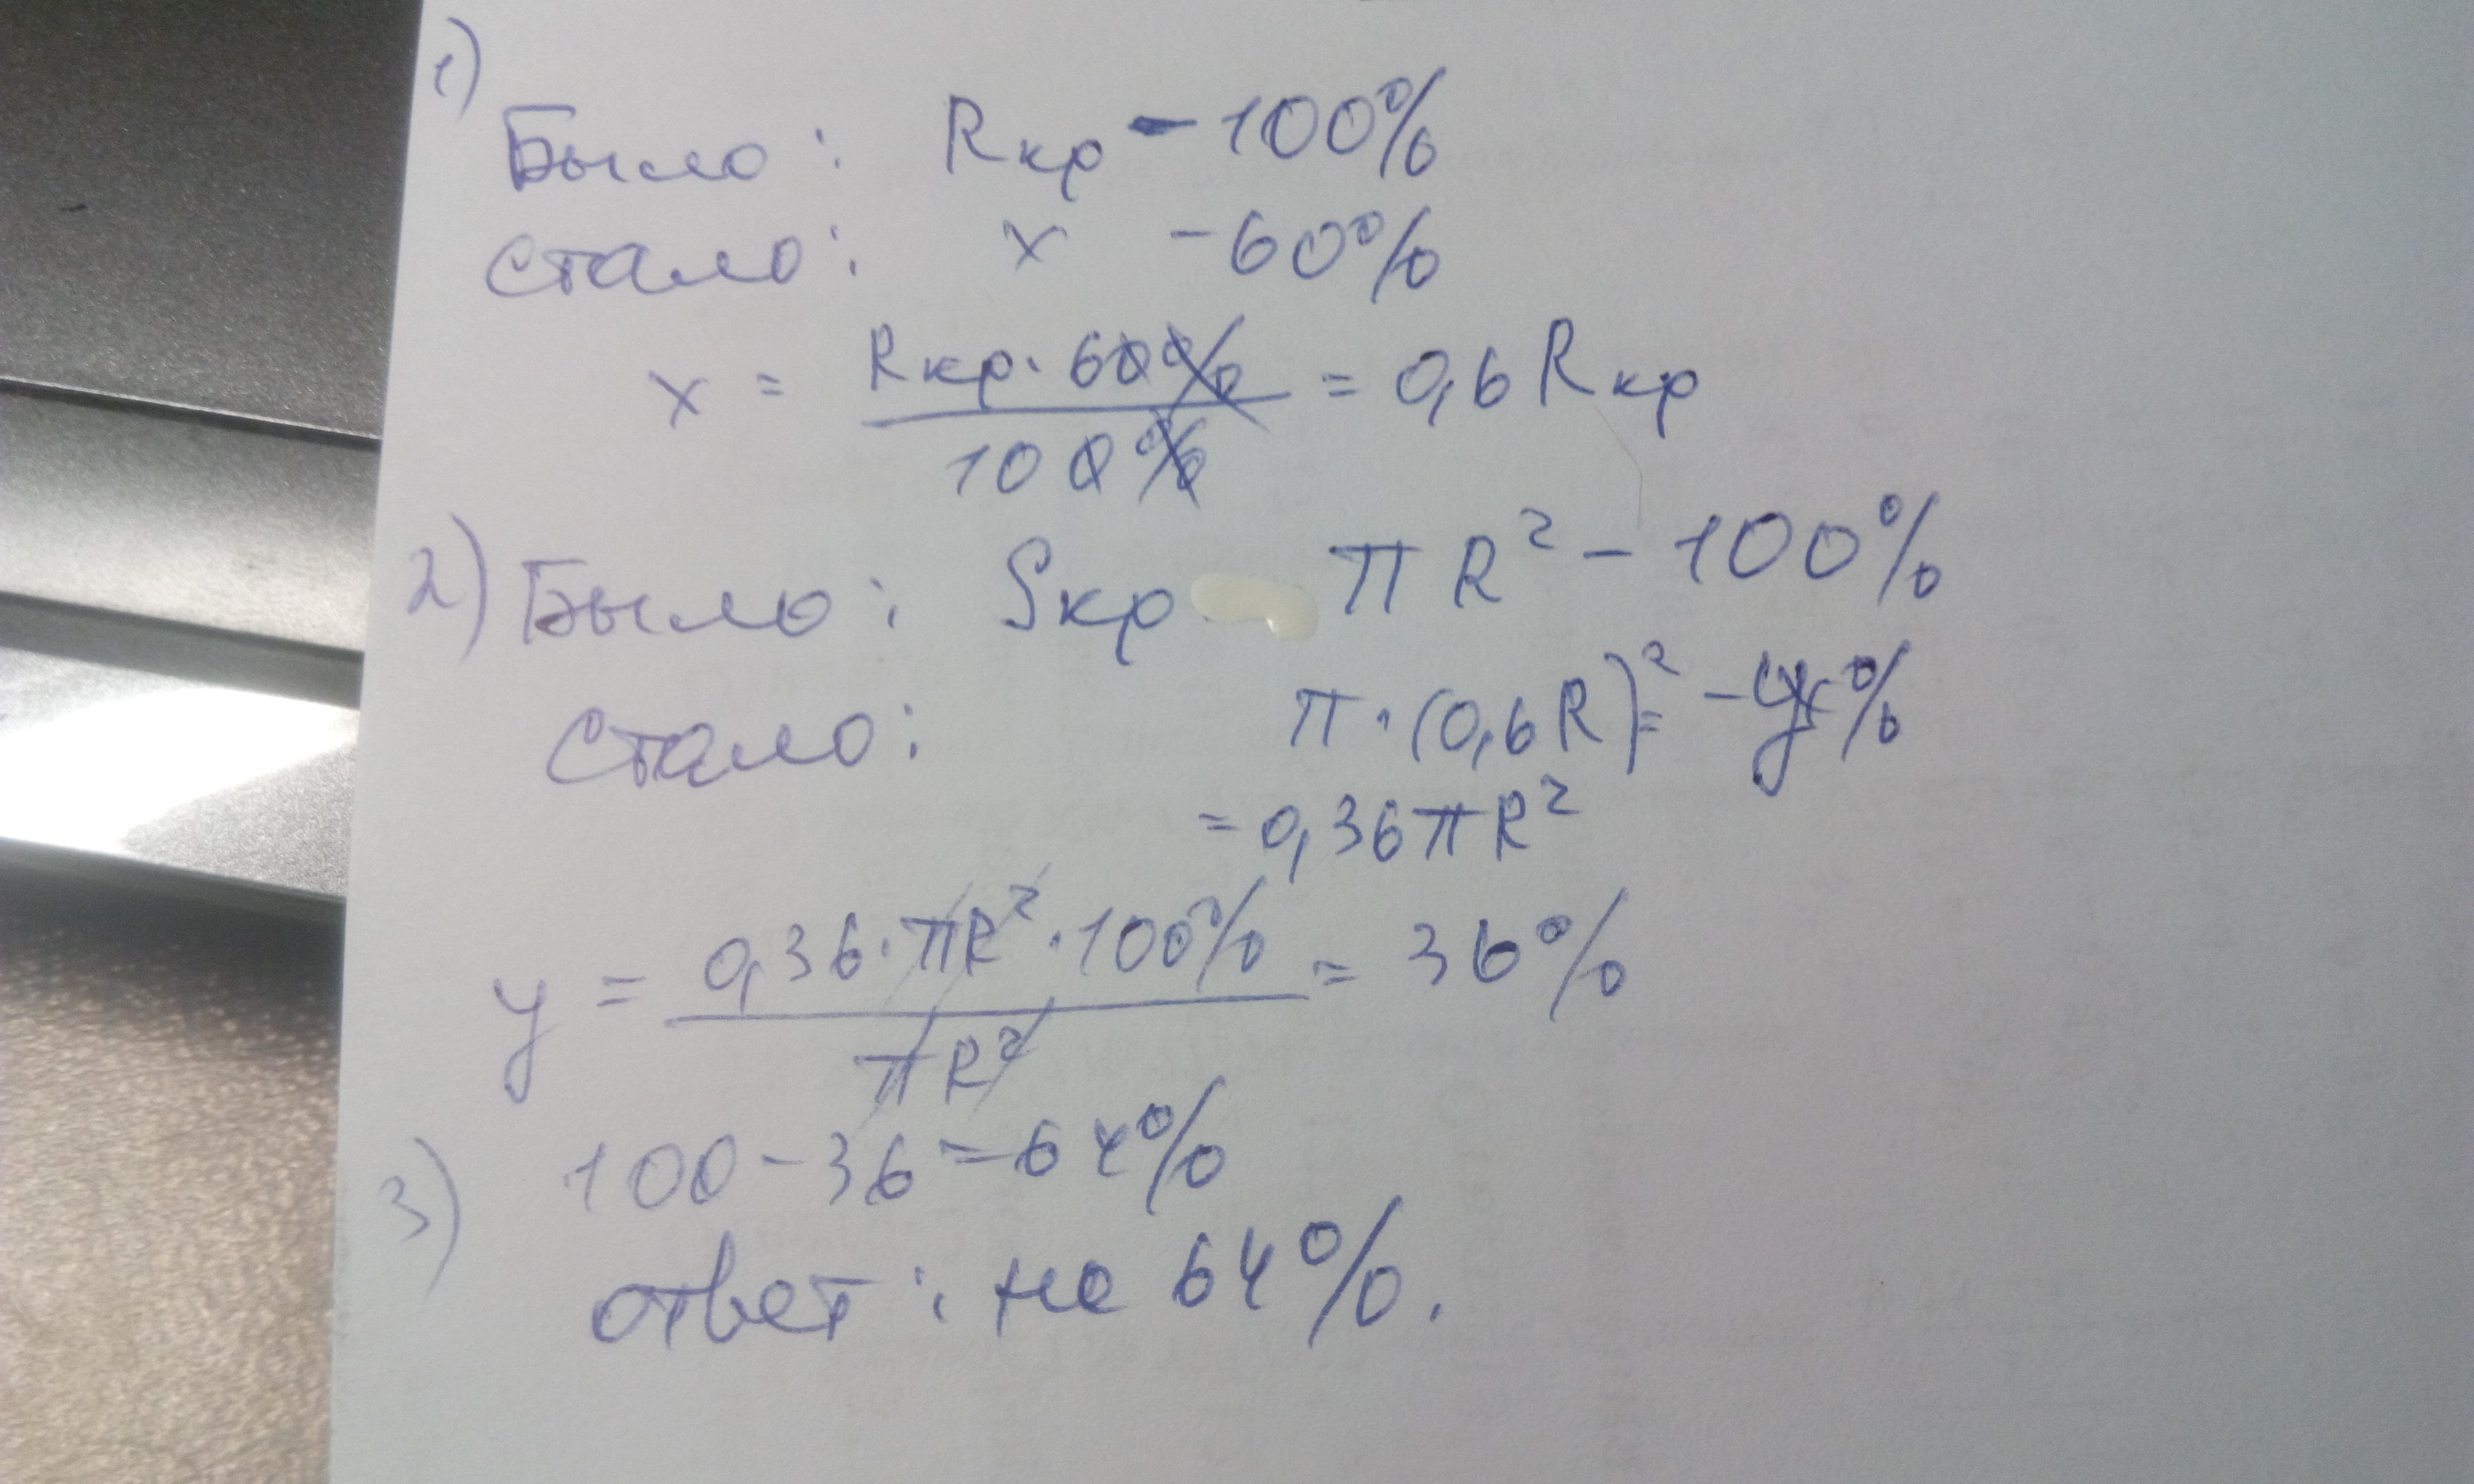 1)
Было: Rкр - 100%
Стало: x - 60%
x = Rкр. · 60% / 100% = 0,6 Rкр
2) Было: Sкр πR² - 100%
Стало: π · (0,6R)² = - y%
= 0,36πR²
y = 0,36 · πR² · 100% / πR² = 36%
3) 100 - 36 = 64%
ответ: на 64%.